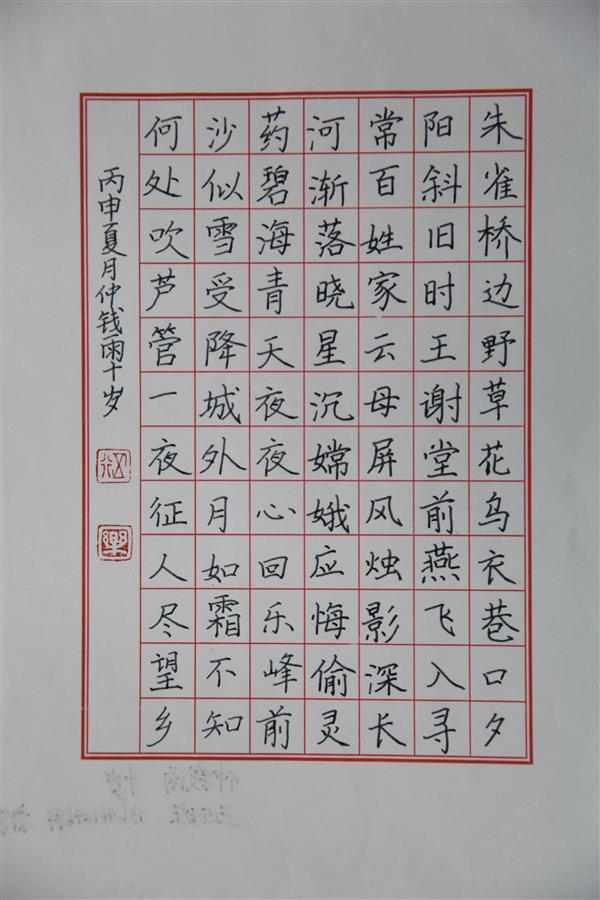 朱雀桥边野草花乌衣巷口夕
阳斜旧时王谢堂前燕飞入寻
常百姓家云母屏风烛影深长
河渐落晓星沉嫦娥应悔偷灵
药碧海青天夜夜心回乐峰前
沙似雪受降城外月如霜不知
何处吹芦管一夜征人尽望乡
丙申夏月仲钱雨十岁